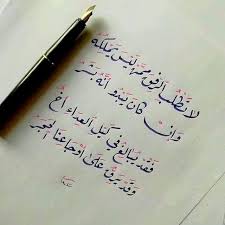 لا تطلب الرفق ممن ليس يملكه
وإن كان يبدو أنه بشر
فقد يبالغ في كيل العداء أخ
وقد يرق على أوجاعنا الحجر